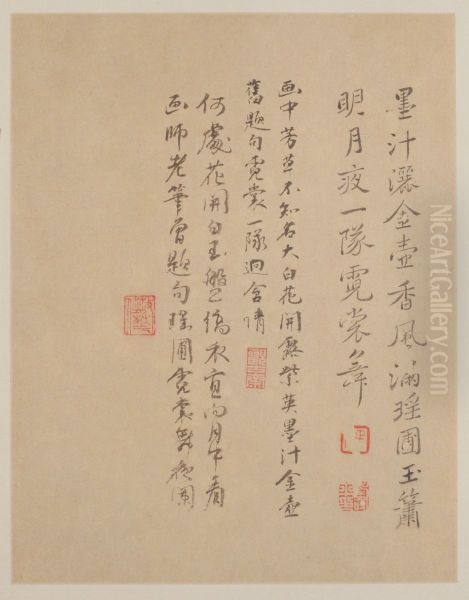 墨汁灑金壺香風滿瑤圃玉簫
明月夜一隊霓裳舞
畫中芳草不知名大白花開露紫英墨汁金壺
舊題句霓裳一隊迥含情
何處花開白玉盤縞衣宜向月中看
畫師老筆曾題句瑤圃霓裳舞夜闌
NiceArtGallery.com